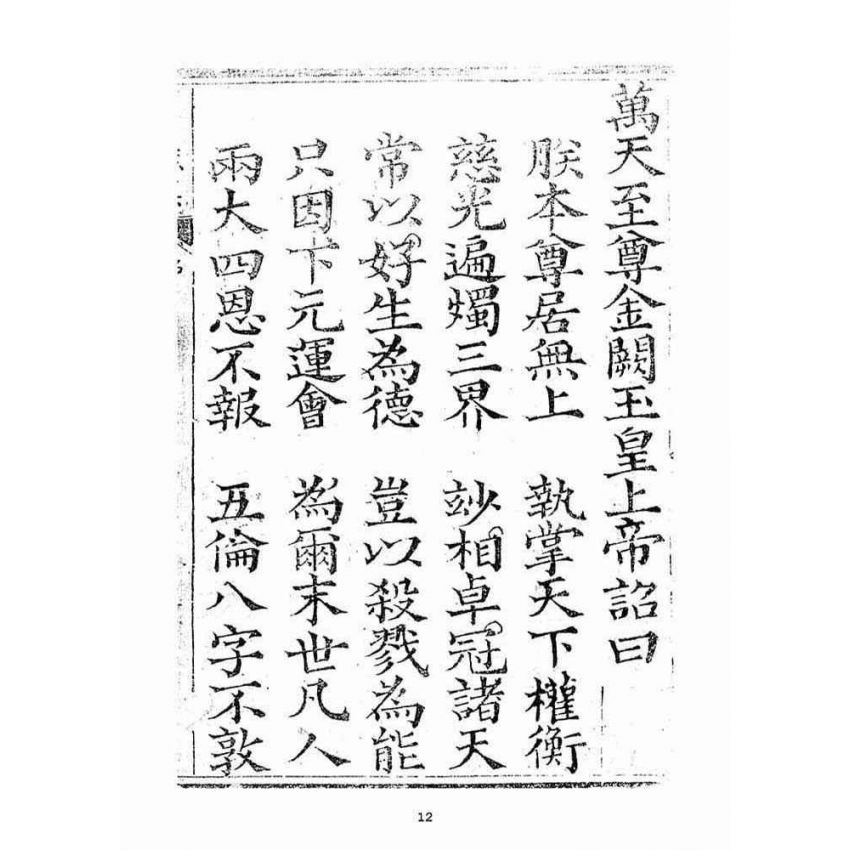 萬天至尊金闕玉皇上帝詔曰
朕本尊居無上 執掌天下權衡
慈光遍燭三界 玅相卓冠諸天
常以好生為德 豈以殺戮為能
只因下元運會 為爾末世凡人
兩大四恩不報 五倫八字不敦
12